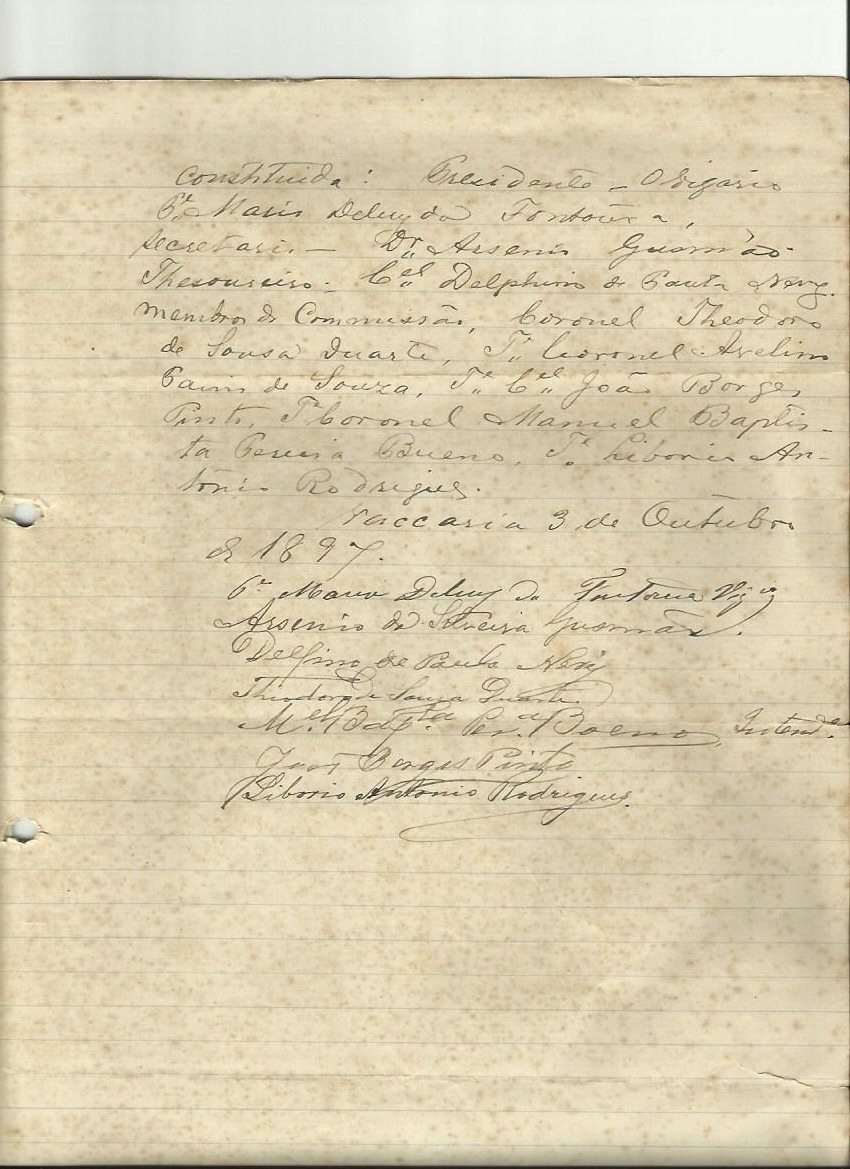 constituida: Presidente – O Vigario
Pe. Mario Deluy da Fontoura,
secretari. – Dr. Arsenio Gusmão
Thesoureiro – Cel. Delphino de Paula Nery.
membros da Commissão, Coronel Theodoro
de Sousa Duarte, Te. Coronel Avelino
Paim de Souza, Te. Cel. João Borges
Pinto, Te. Coronel Manuel Baptis-
ta Pereira Bueno, Te. Liborio An-
tonio Rodrigues.
Vaccaria 3 de Outubro
de 1897.
Pe. Mario Deluy da Fontoura Vigr.
Arsenio da Silveira Gusmão.
Delfino de Paula Nery
Theodoro de Souza Duarte.
Mel. Bapta. Pera. Boeno, Intende.
João Borges Pinto
Liborio Antonio Rodrigues.